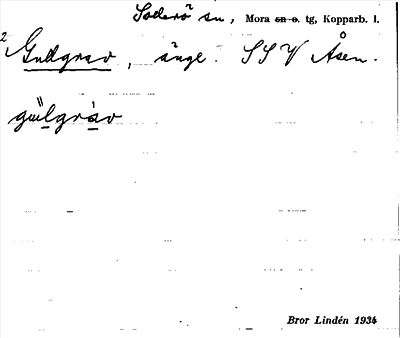 Soderö sn, Mora sn o. tg, Kopparb. l.
2 Gullgrav, änge. SSV Åsen.
gullgràv
Bror Lindén 1934